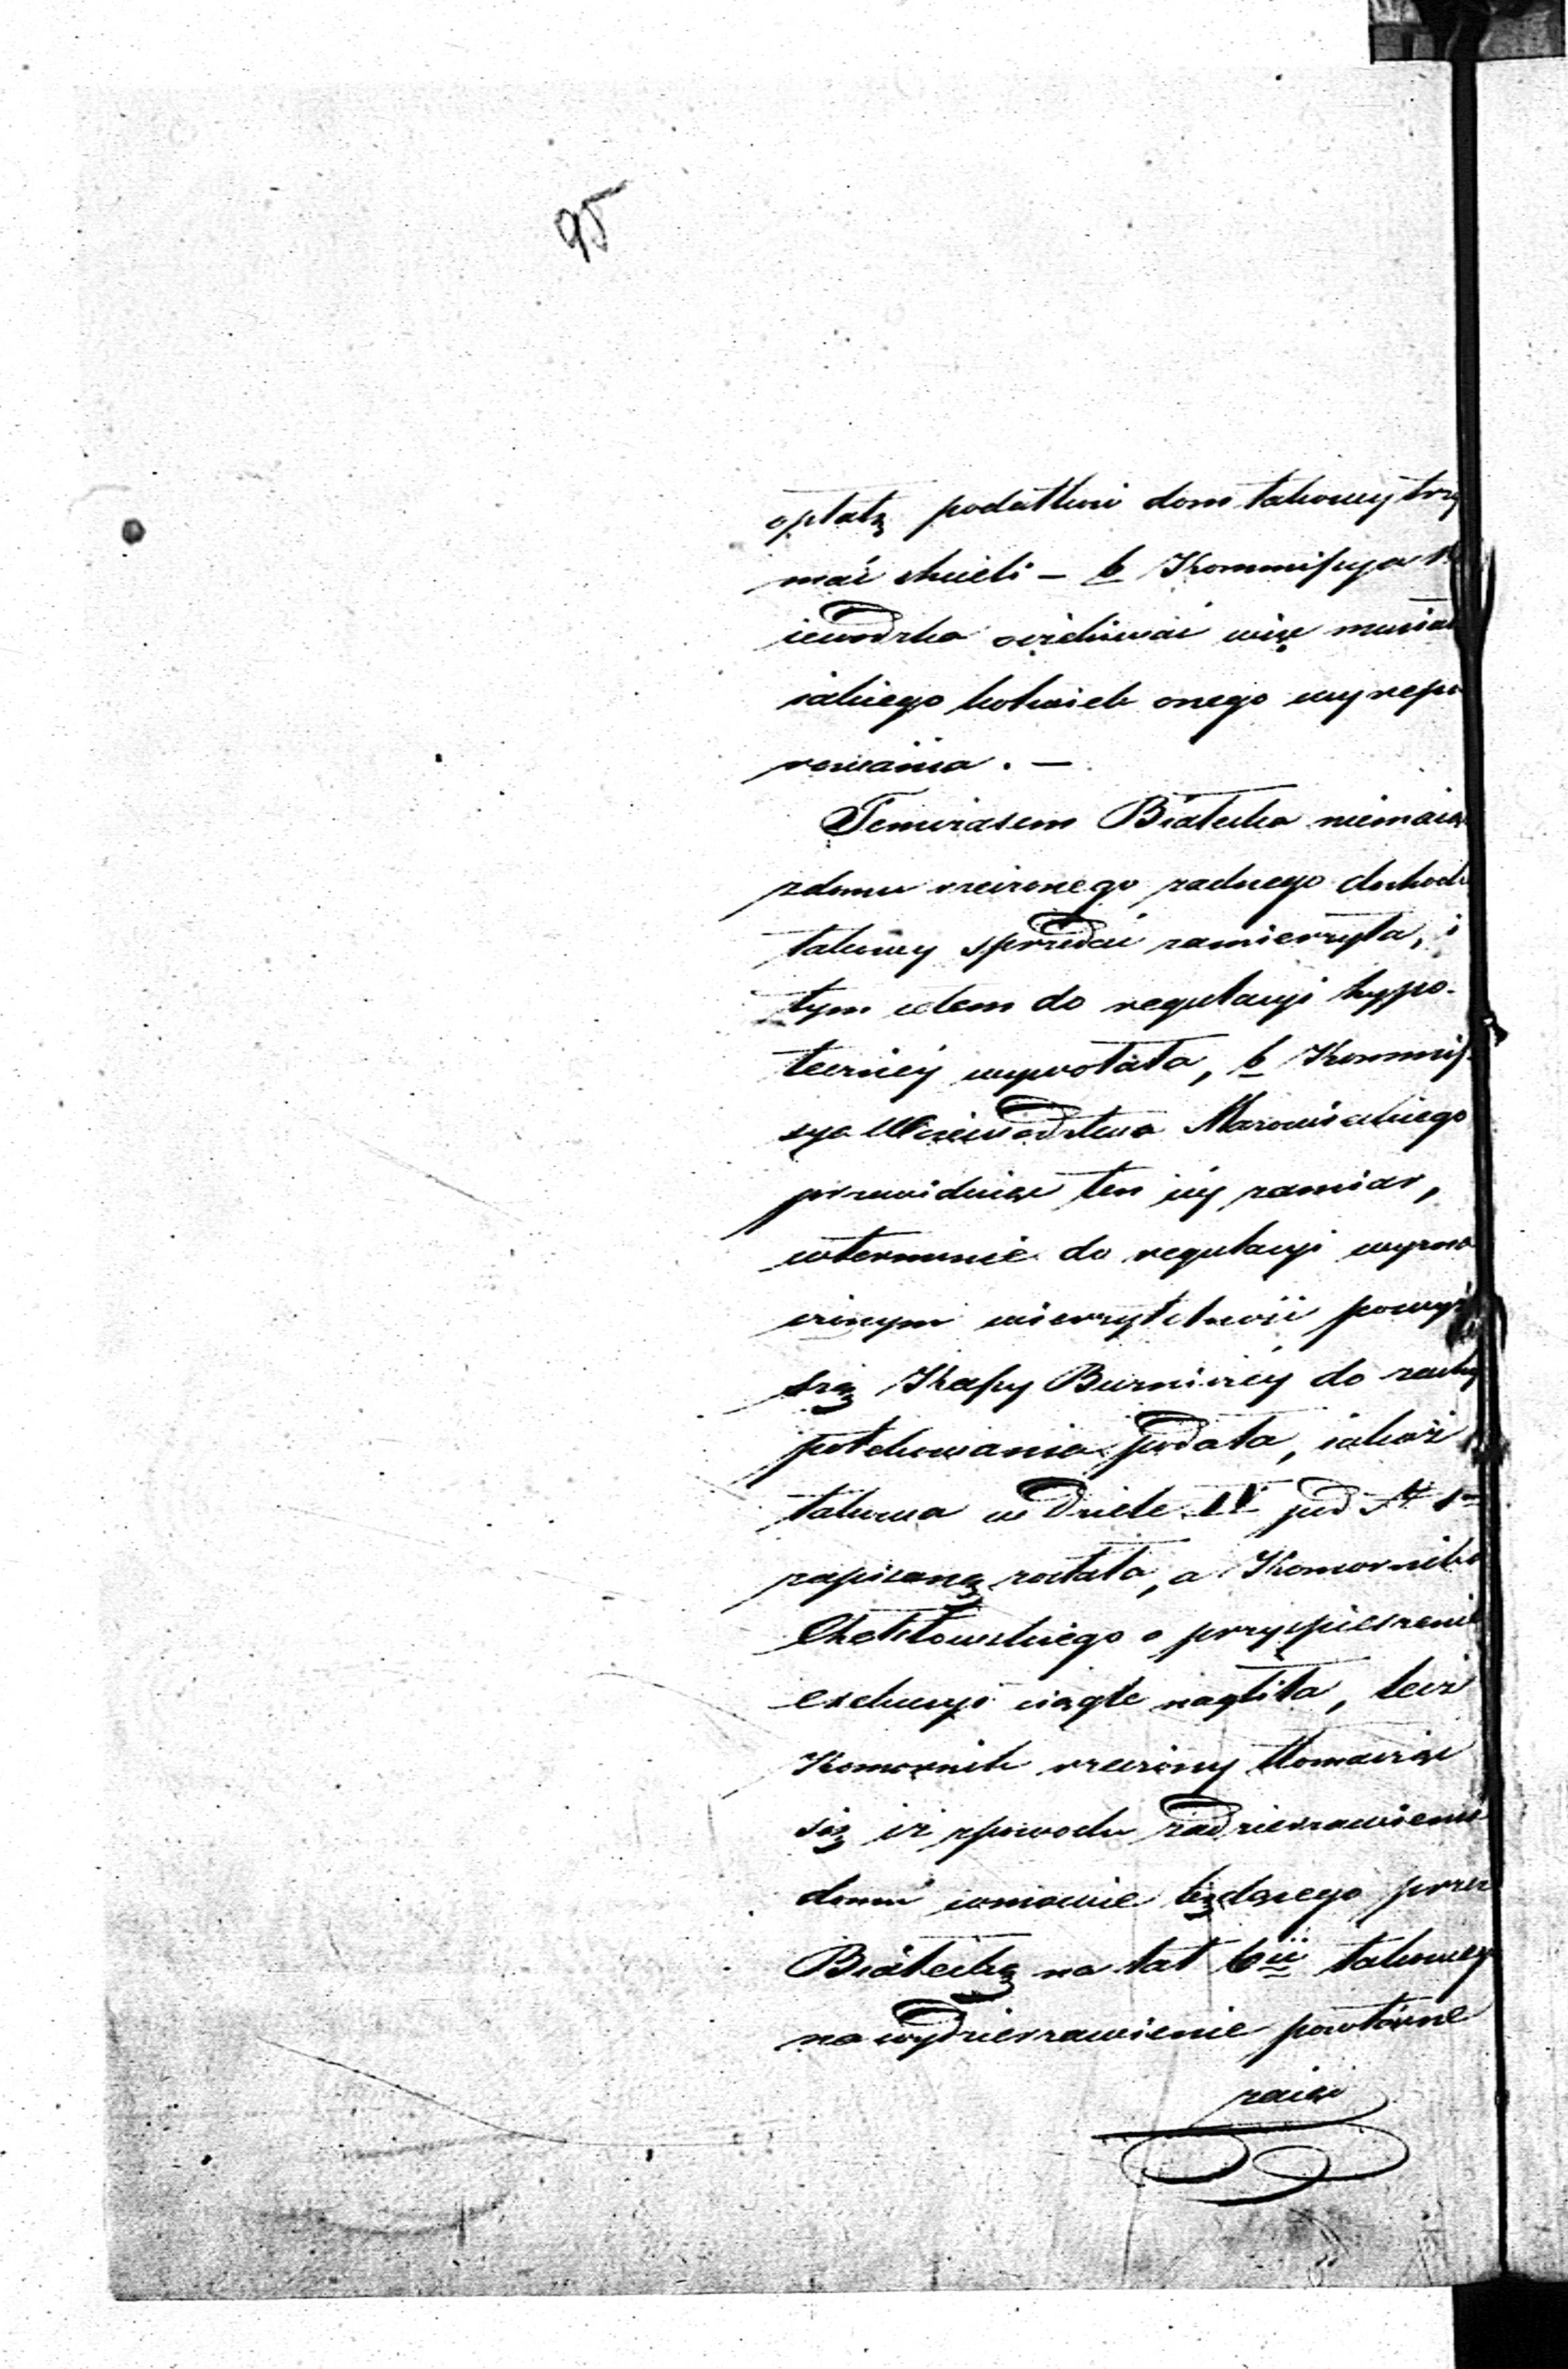 95
opłatą podatków dom takowy trzy
mać chcieli – b Kommissya W
iewodzka oczekiwać więc musiał
iakiego kolwiek onego wyrepe
rowania . —
Tymczasem Białecka niemaiąc
zdomu rzeczonego żadnego dochodu
takowy sprzedać zamierzyła, i
tym celem do regulacyi hypo-
tecznéy wywołała, b Kommis
sya Województwa Mazowieckiego
przewidując ten iéy zamiar,
wterminie do regulacyi wyzna
czonym wierzytelność powyż
szą Kassy Burniczéy do zachy
potekowania podała, iakoż
takowa w Dziele IV pod N 1
zapisaną została, a Komornika
Chełstowskiego o przyspieszenie
exekucyi ciągle nagliła, lecz
Komornik rzeczony tłomacząc
się iż zpowodu zadzierzawienia
domu wmowie będącego przez
Białecką na lat 6 takowey
na wydzierzawienie powtórne
zaiąć